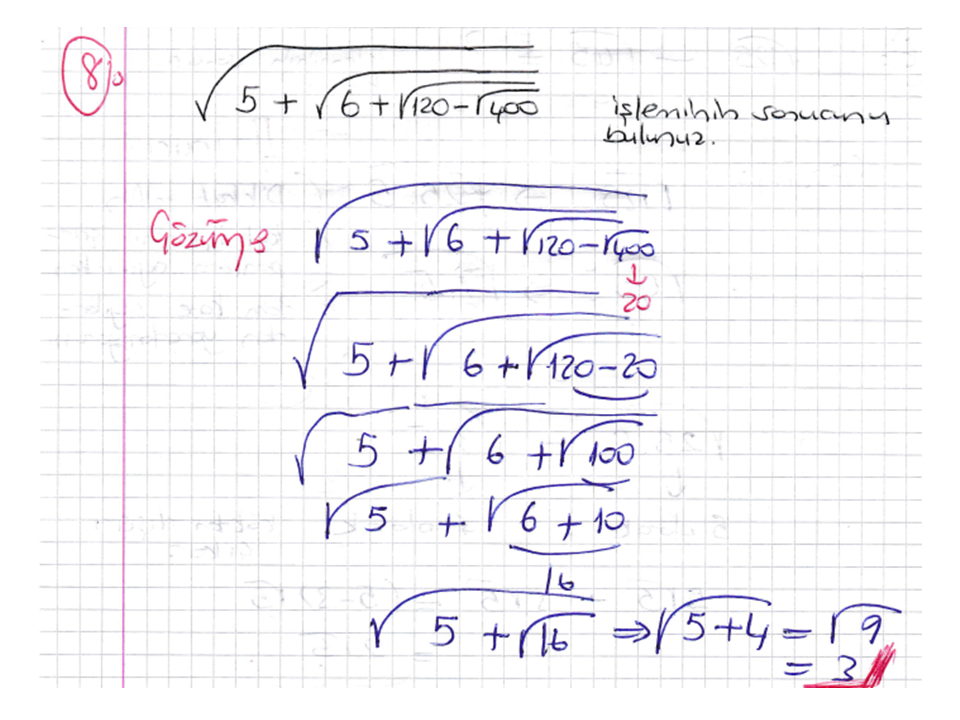 8)
√(5 + √(6 + √(120 - √400))) işleminin sonucunu
bulunuz.
Çözüm: √(5 + √(6 + √(120 - √400)))
↓
20
√(5 + √(6 + √(120 - 20)))
√(5 + √(6 + √100))
√(5 + √(6 + 10))
16
√(5 + √16) ⇒ √(5+4) = √9
= 3